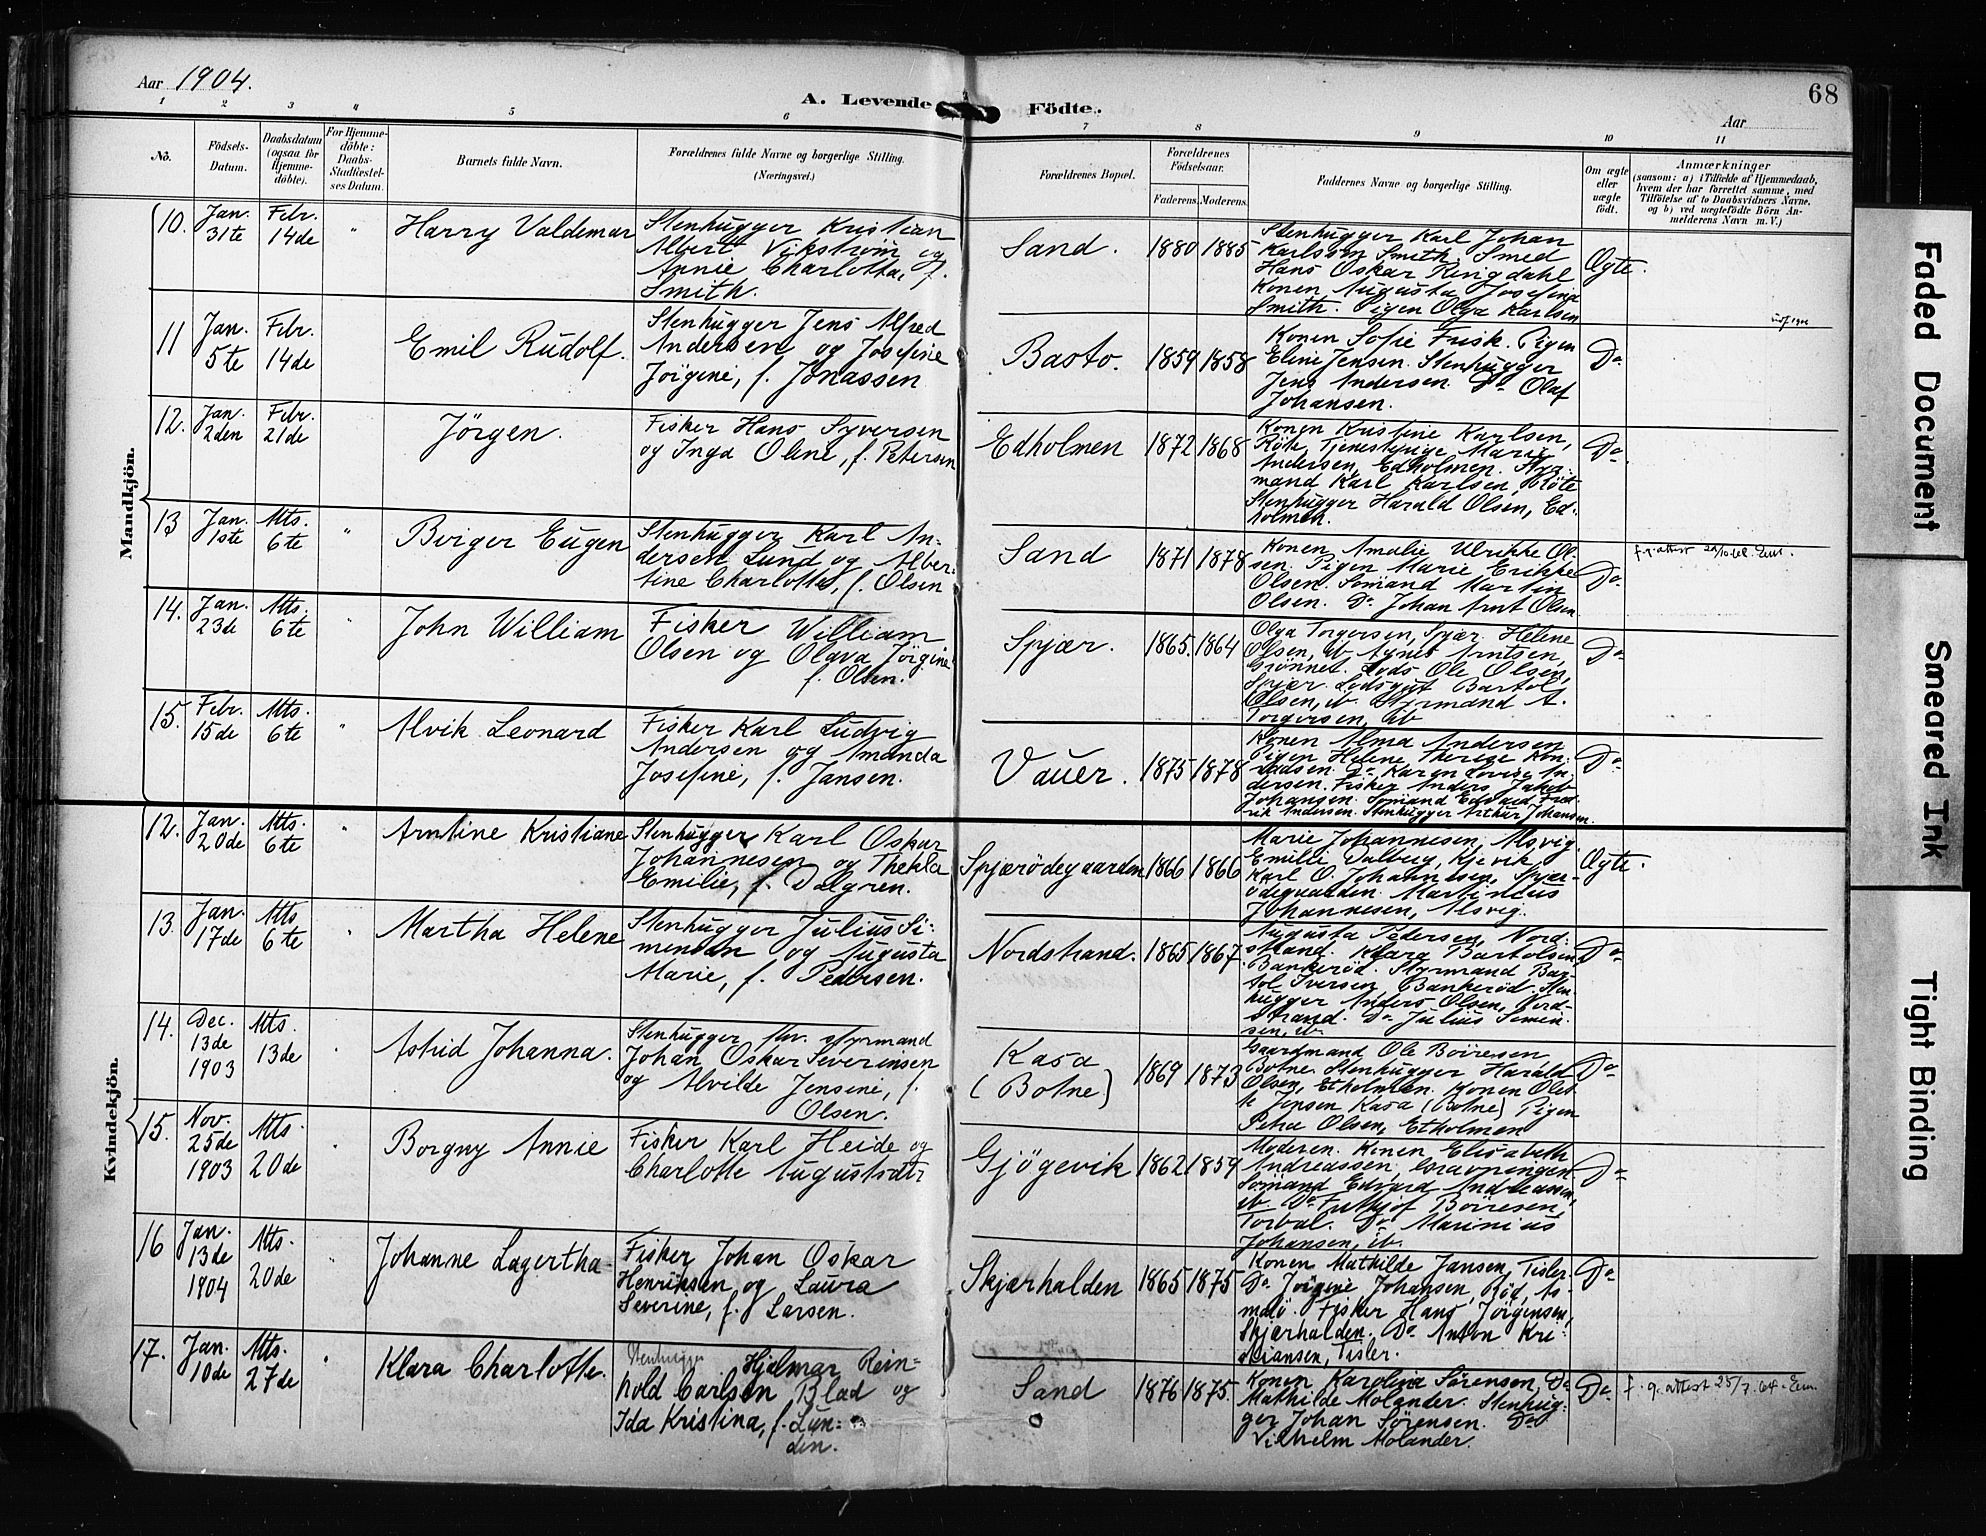 Aar 1904.
A. Levende Födte.
68
Aar
1 2 3 4 5 6 7 8 9 10 11
No.
Födsels-Datum.
Daabsdatum (ogsaa for Hjemme-döbte).
For Hjemme-döbte: Daabs-Stadfæstel-ses Datum.
Barnets fulde Navn.
Forældrenes fulde Navne og borgerlige Stilling.
(Næringsvei.)
Forældrenes Bopæl.
Forældrenes Födselsaar.
Faderens. Moderens.
Faddernes Navne og borgerlige Stilling.
Om ægte eller uægte födt.
Anmærkninger
(saasom: a) i Tilfælde af Hjemmedaab,
hvem der har forrettet samme, med
Tilföielse af to Daabsvidners Navne.
og b) ved uægtefödte Börn An-
melderens Navn m. V.)
Mandkjön.
10. Jan. 31te
Febr. 14de
"
Harry Valdemar
Stenhugger Kristian
Albert Vikström og
Annie Charlotta, f.
Smith.
Sand.
1880 1885
Stenhugger Karl Johan
Karlsson Smith. Smed
Hans Oskar Ringdahl
Konen Augusta Josefina
Smith. Pigen Olga Karlsen
Ægte.
11 Jan. 5te
Febr. 14de
Emil Rudolf.
Stenhugger Jens Alfred
Andersen og Josefine
Jörgine, f. Jonassen
Basto.
1859 1858
Konen Sofie Frisk. Pigen
Eline Jensen. Stenhugger
Jens Andersen. Do Olaf
Johansen.
Do
12. Jan. 2den
Febr. 21de
Jörgen.
Fisker Hans Syversen
og Inga Oline, f. Petersen
Edholmen
1872 1868
Konen Kristine Karlsen,
Röte, Tjenestepige Marie
Andersen, Edholmen. Styr-
mand Karl Karlsen, Röte
Stenhugger Harald Olsen, Ed-
holmen.
Do
13 Jan. 1ste
Mts. 6te
"
Birger Eugen
Stenhugger Karl An-
dersen Lund og Alber-
tine Charlotte, f. Olsen
Sand
1871 1878
Konen Amalie Ulrikke Ol-
sen. Pigen Marie Erikke
Olsen. Sömand Martin
Olsen. Do Johan Arnt Olsen
Do
14. Jan. 23de
Mts. 6te
"
John William
Fisker William
Olsen og Olava Jörgine
f. Olsen.
Spjær.
1865. 1864
Olga Torgersen, Spjær. Helene
Olsen, ib Agnes Arntsen,
Grönnet. Lods Ole Olsen,
Spjær. Lodsgut Bartol
Olsen, ib. Styrmand A.
Torgersen, ib
Do
15. Febr. 15de
Mts. 6te
"
Alvik Leonard
Fisker Karl Ludvig
Andersen og Amanda
Josefine, f. Jansen.
Vauer.
1875 1878
Konen Alma Andersen
Pigen Helene Therese Kon-
radsen. Do Karen Lovise An-
dersen. Fisker Anders Jakob
Johansen. Sömand Edvard Fred-
rik Andersen. Stenhugger Arthur Johansen.
Do
Kvindekjön.
12. Jan. 20de
Mts. 6te
"
Arntine Kristiane
Stenhugger Karl Oskar
Johannesen og Thekla
Emilie, f. Dalgren.
Spjærödegaarden
1866 1866
Marie Johannesen, Alsvig.
Emilie Dalberg, Kjevik
Karl O. Johannesen, Spjær-
ödegaarden. Martinius
Johannesen, Alsvig.
Ægte.
13. Jan. 17de
Mts 6te
"
Martha Helene
Stenhugger Julius Si-
mensen og Augusta
Marie, f. Pedersen.
Nordstrand.
1865 1867
Augusta Pedersen, Nord-
strand. Klara Bartolsen
Bankeröd. Styrmand Bar-
tol Iversen Bankeröd. Sten-
hugger Anders Olsen, Nord-
strand. Do Julius Simen-
sen, ib.
Do
14. Dec. 13de 1903
Mts. 13de
Astrid Johanna.
Stenhugger fhv. styrmand
Johan Oskar Severinsen
og Alvilde Jensine, f.
Olsen.
Kasa
(Botne)
1869 1873
Gaardmand Ole Börresen
Botne. Stenhugger Harald
Olsen, Etholmen. Konen
Jensen Kasa (Botne) Pigen
Olsen, Etholmen
Do
15. Nov. 25de 1903
Mts. 20de
Borgny Annie
Fisker Karl Heide og
Charlotte Augustsdtr
Gjögevik
1862 1859
Moderen. Konen Elisabeth
Andreassen, Gravningen
Sömand Edvard Andreassen,
ib. Do Fritkjof Börresen,
Torbal. Do Marinius
Johansen, ib.
Do
16 Jan. 13de 1904
Mts. 20de
"
Johanne Lagertha
Fisker Johan Oskar
Henriksen og Laura
Severine, f. Larsen.
Skjærhalden
1865 1875
Konen Mathilde Jansen, Tisler.
Do Jörgine Johansen, Röd, As-
malö. Fisker Hans Jörgensen,
Skjærhalden. Do Anton Kri-
stiansen, Tisler.
Do
17. Jan. 10de
Mts. 27de
"
Klara Charlotte.
Stenhugger Hjalmar Rein-
hold Carlsen Blad og
Ida Kristina, f. Lun-
din.
Sand
1876 1875.
Konen Karolina Sörensen, Do
Mathilde Molander. Stenhug-
ger Johan Sörensen. Do
Vilhelm Molander.
Do
f. g. attest 25/7. 64.
Faded Document
Smeared Ink
Tight Binding